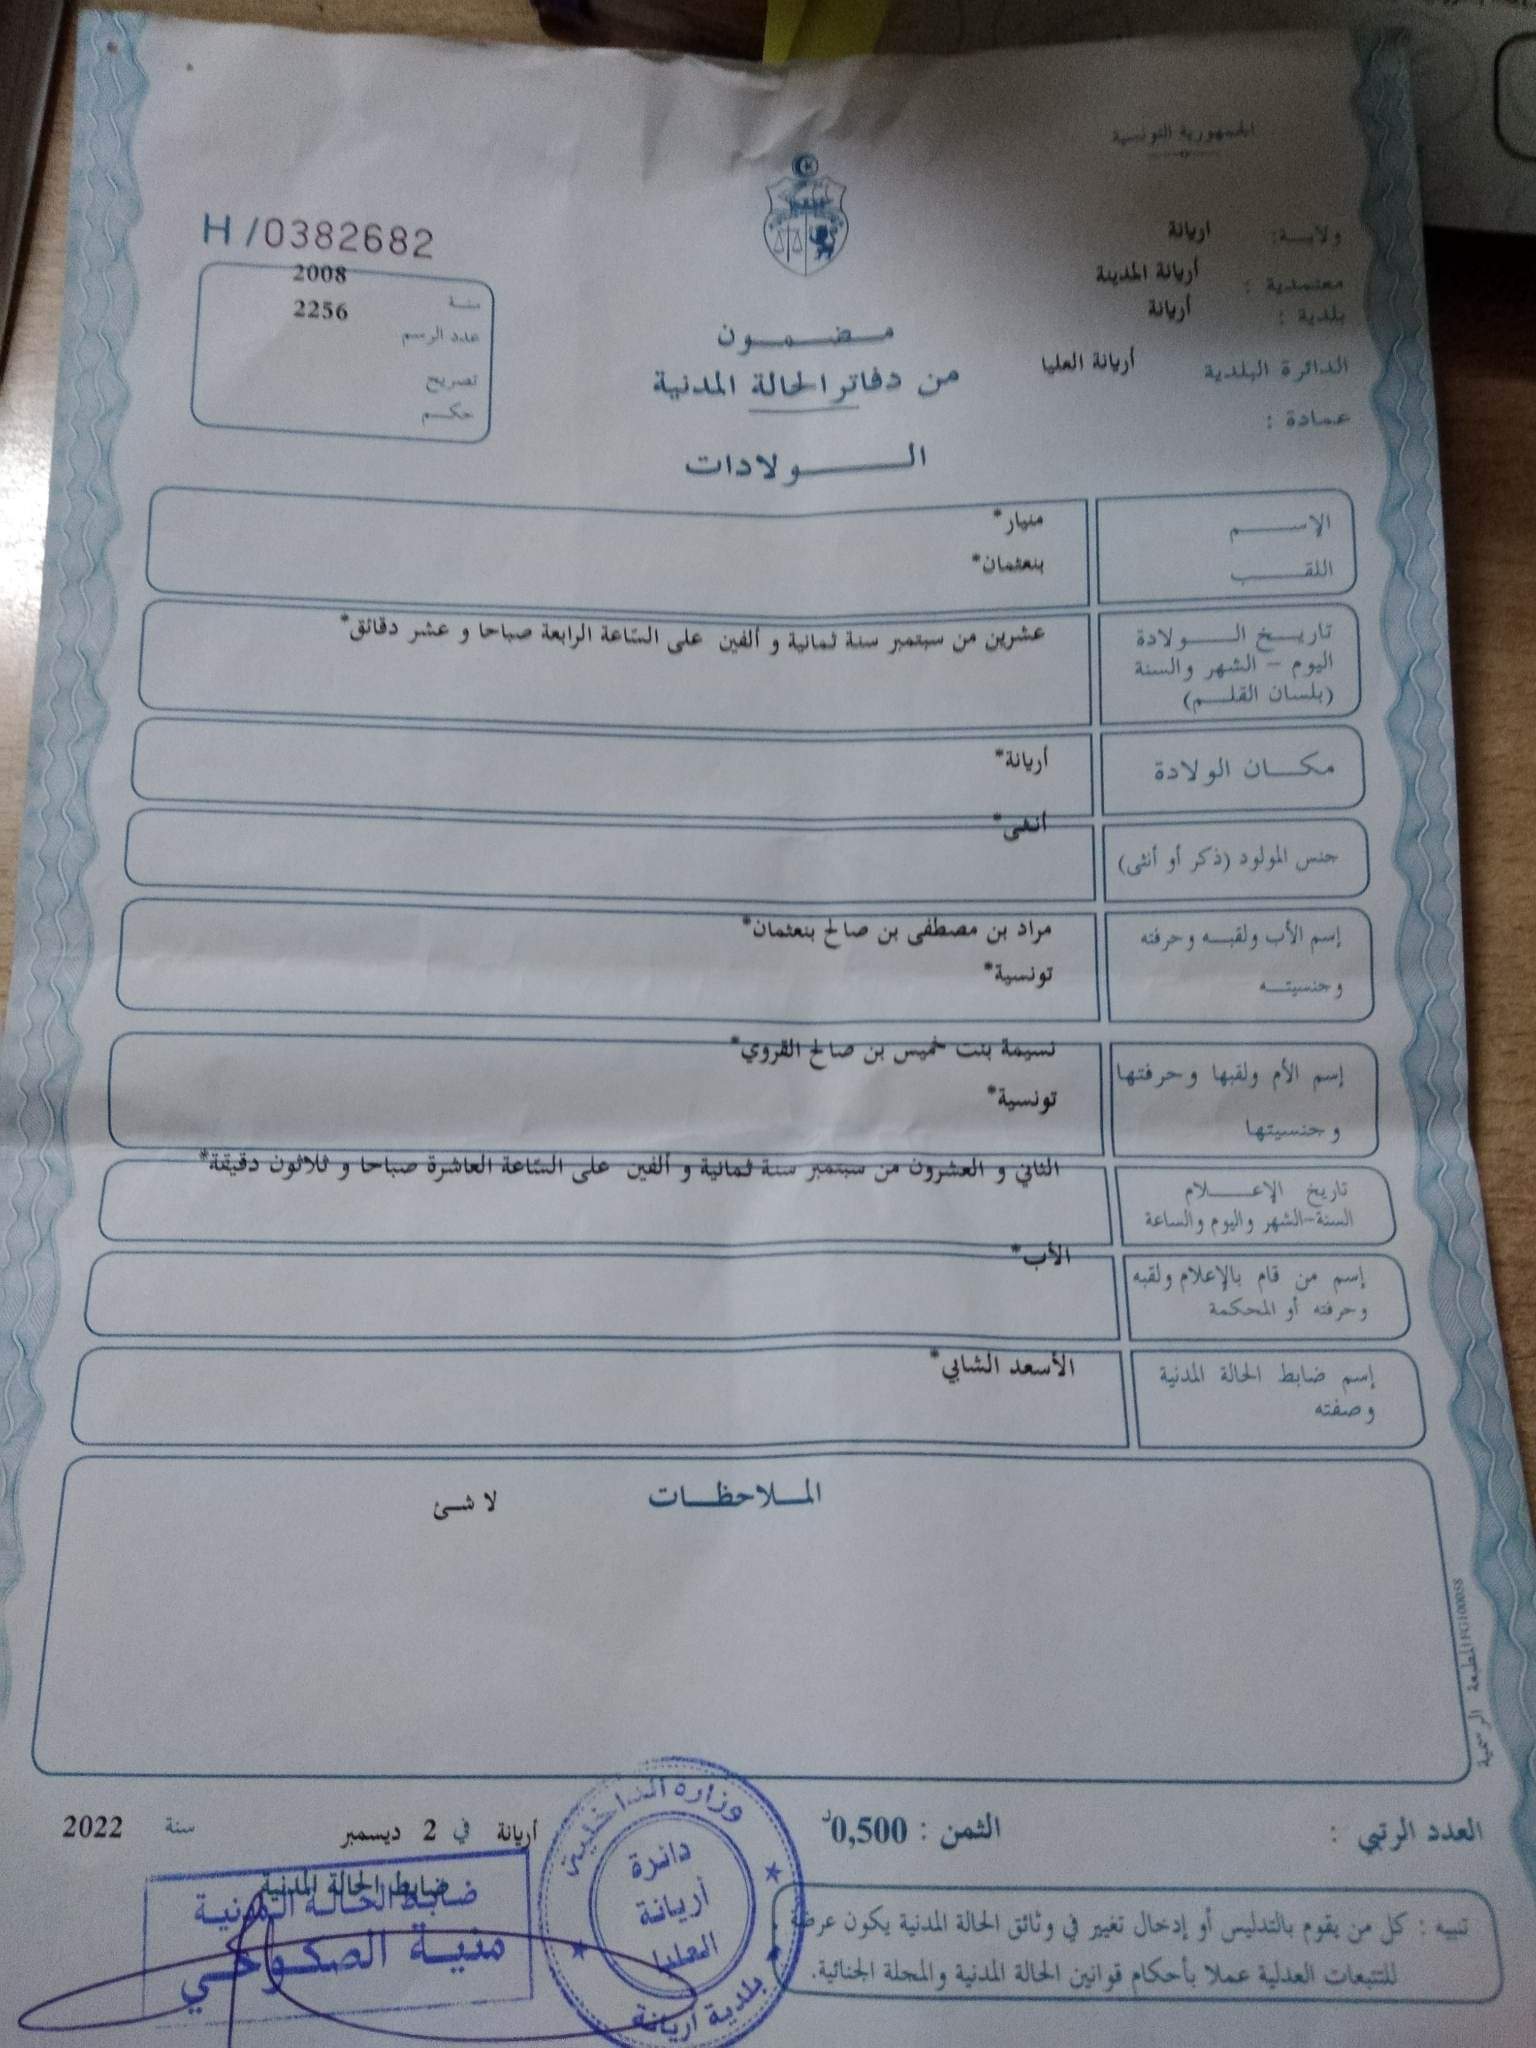 الجمهورية التونسية
ولاية: اريانة
معتمدية : أريانة المدينة
بلدية : أريانة
الدائرة البلدية أريانة العليا
عمادة :
H /0382682
سنة 2008
عدد الرسم 2256
تصريح
حكم
مضمون
من دفاتر الحالة المدنية
الولادات
الإسم منيار*
اللقب بنعثمان*
تاريخ الولادة
اليوم - الشهر والسنة
(بلسان القلم)
عشرين من سبتمبر سنة ثمانية و ألفين على السّاعة الرابعة صباحا و عشر دقائق*
مكان الولادة أريانة*
جنس المولود (ذكر أو أنثى) أنثى*
إسم الأب ولقبه وحرفته مراد بن مصطفى بن صالح بنعثمان*
وجنسيته تونسية*
إسم الأم ولقبها وحرفتها نسيمة بنت خميس بن صالح القروي*
وجنسيتها تونسية*
تاريخ الإعلام
السنة-الشهر واليوم والساعة
الثاني و العشرون من سبتمبر سنة ثمانية و ألفين على السّاعة العاشرة صباحا و ثلاثون دقيقة*
إسم من قام بالإعلام ولقبه
وحرفته أو المحكمة
الأب*
إسم ضابط الحالة المدنية
وصفته
الأسعد الشابي*
الملاحظات
لا شئ
المطبعة الرسمية
العدد الرتبي :
الثمن : 0,500د
أريانة في 2 ديسمبر سنة 2022
ضابط الحالة المدنية
ضابط الحالة المدنية
منية الصكوحي
وزارة الداخلية
دائرة
أريانة
العليا
بلدية أريانة
تنبيه : كل من يقوم بالتدليس أو إدخال تغيير في وثائق الحالة المدنية يكون عرضة
للتتبعات العدلية عملا بأحكام قوانين الحالة المدنية والمجلة الجنائية.